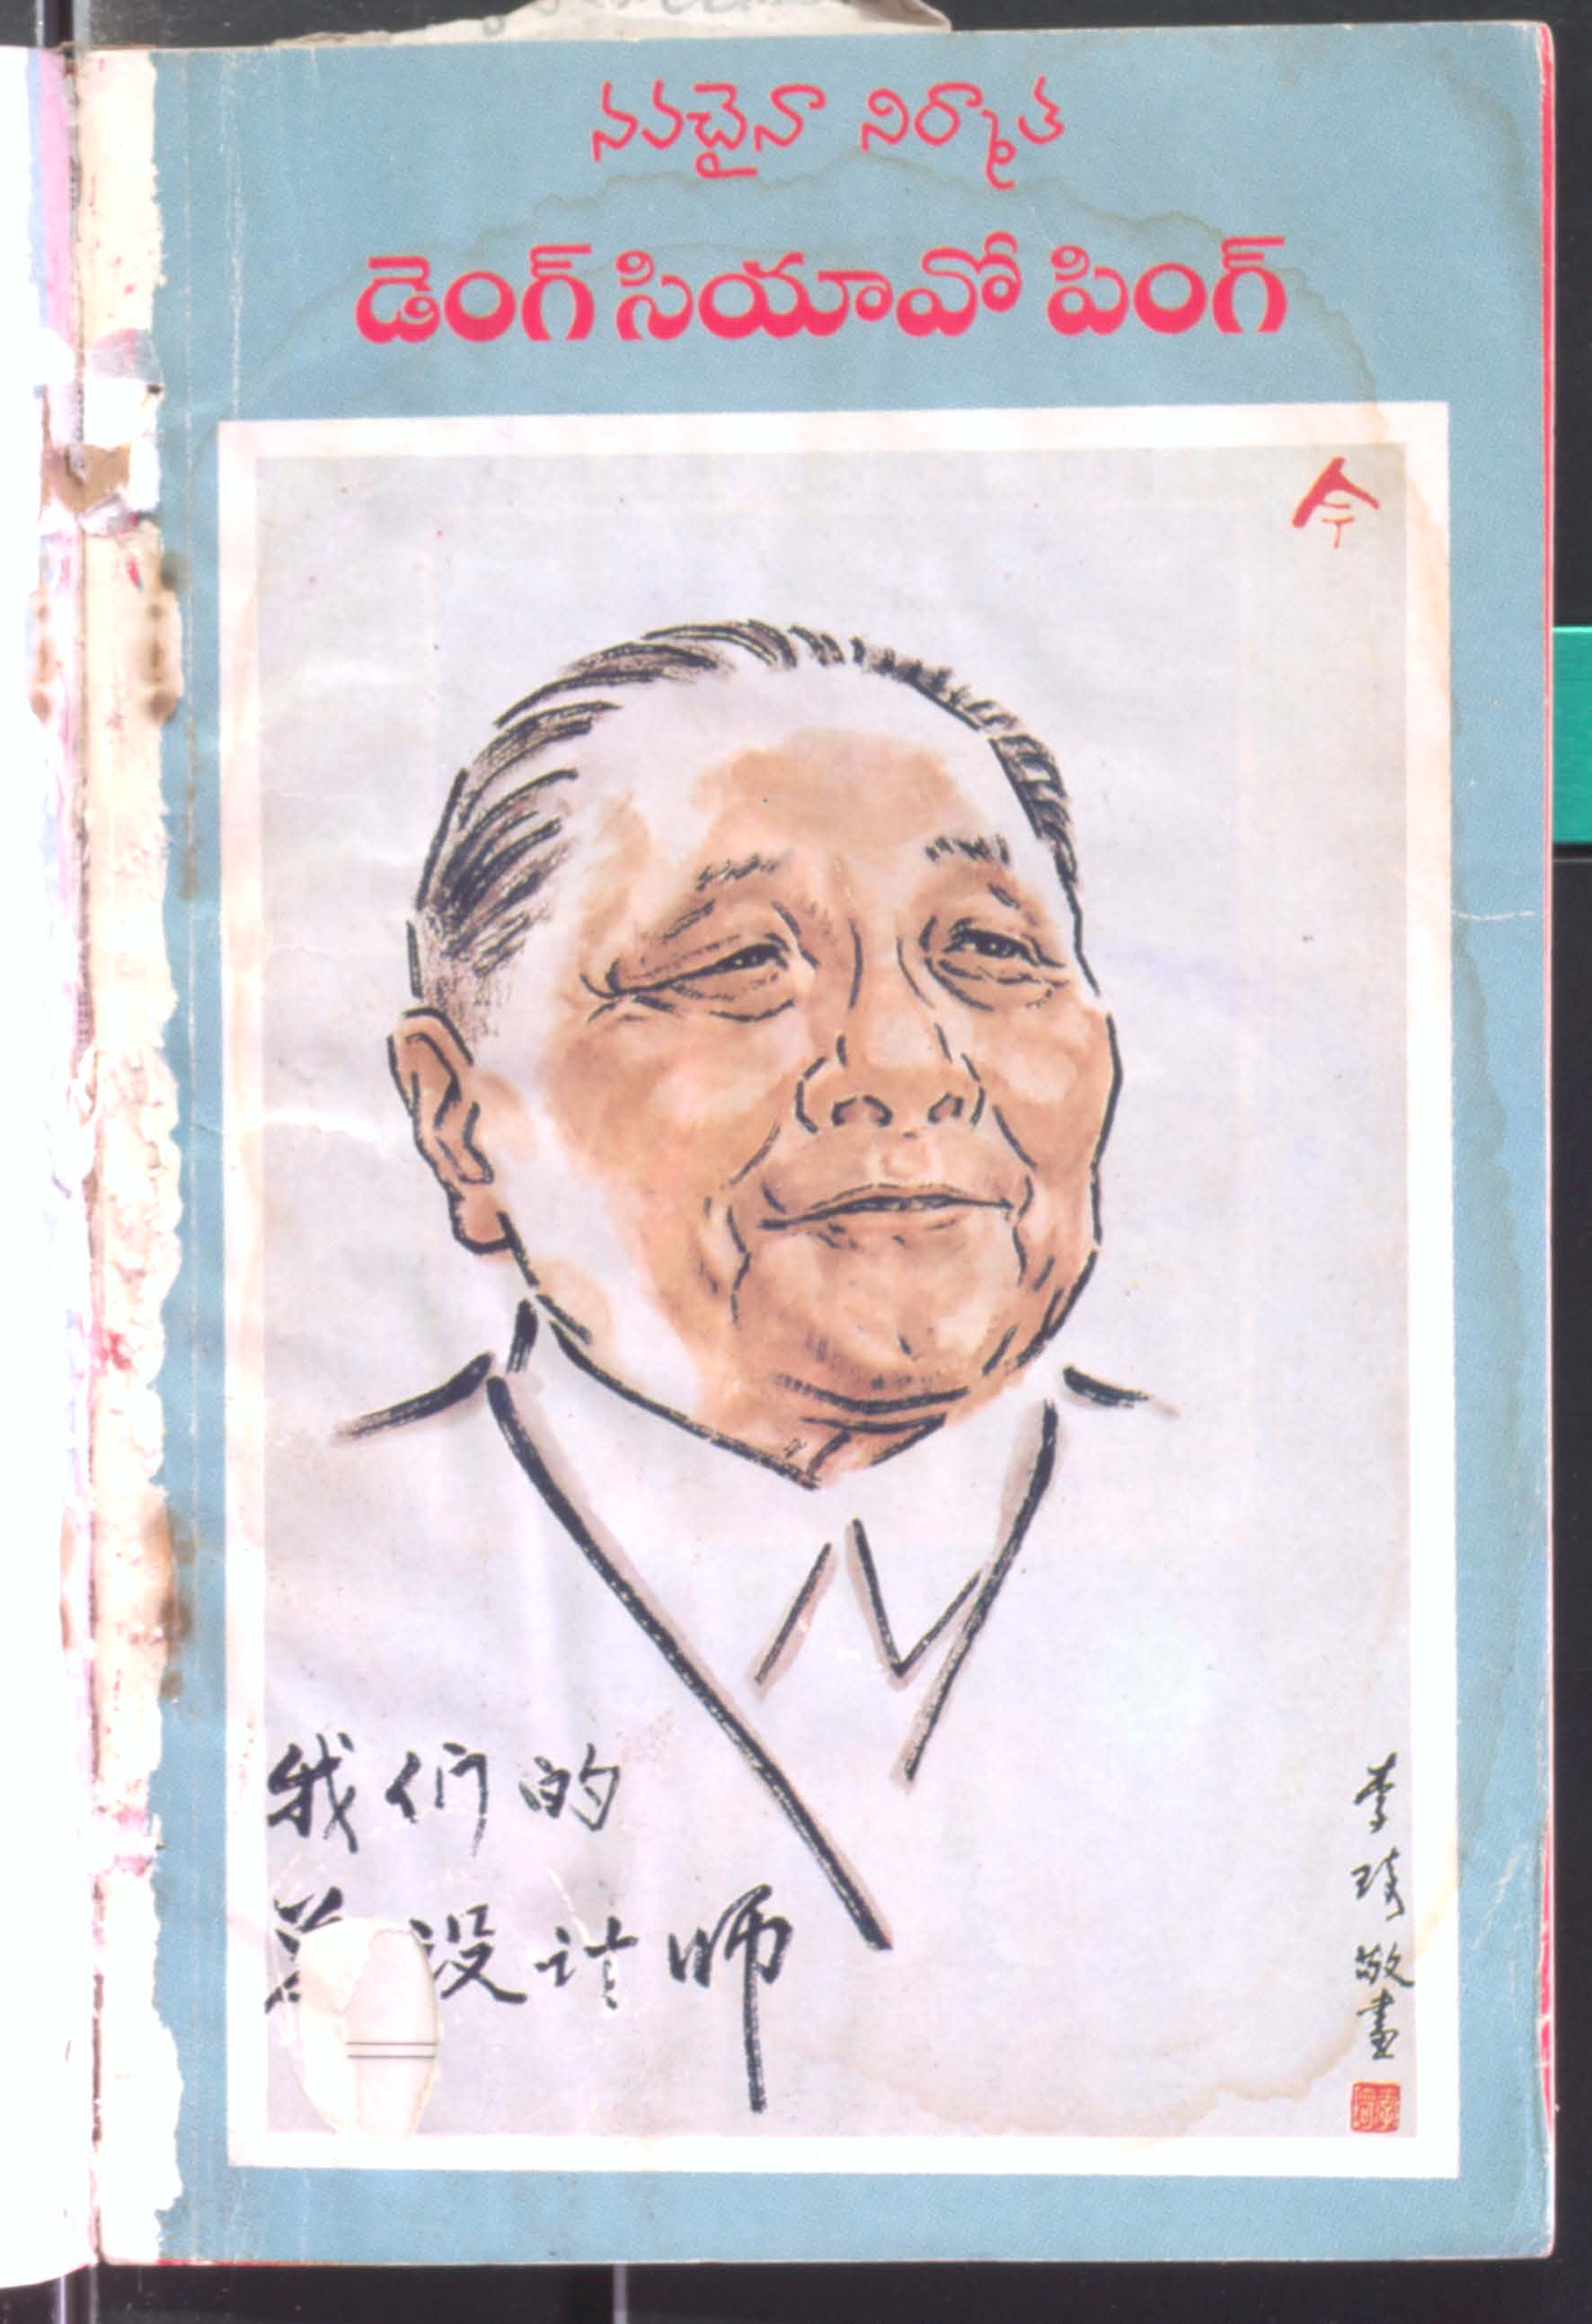 నవచైనా నిర్మాత
డెంగ్ సియావో పింగ్
今
我们的
总设计师
李琦敬画